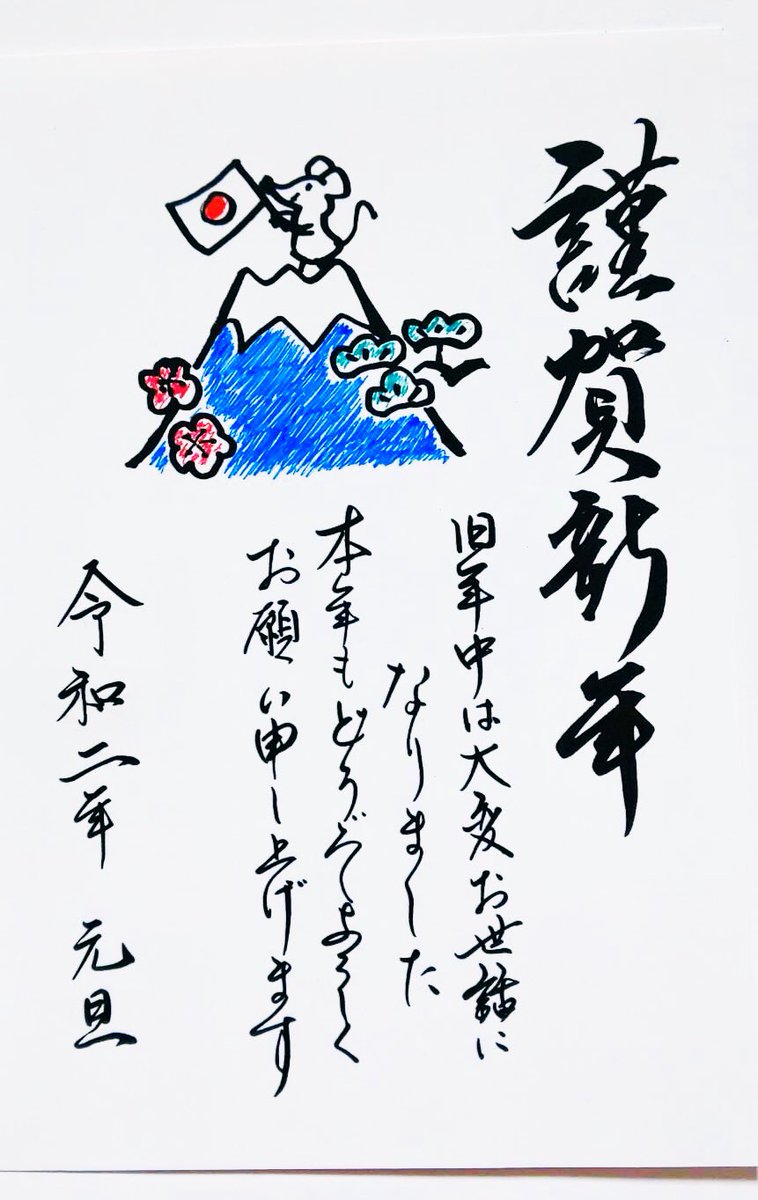 謹賀新年
旧年中は大変お世話に
なりました
本年もどうぞよろしく
お願い申し上げます
令和二年 元旦